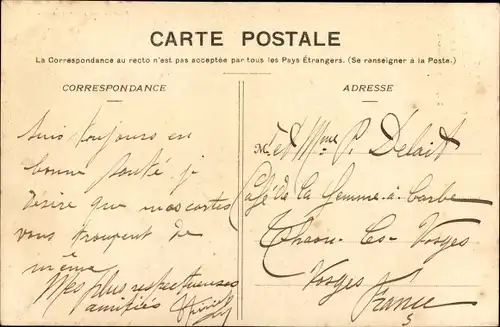 CARTE POSTALE
La Correspondance au recto n'est pas acceptée par tous les Pays Étrangers. (Se renseigner à la Poste.)
CORRESPONDANCE
Suis toujours en
bonne santé. je
désire que mes cartes
vous trouvent de
même
Mes plus respectueuses
amitiés
ADRESSE
M. et Mme P. Delait
Café de la femme à barbe
Thaon-les-Vosges
Vosges
France